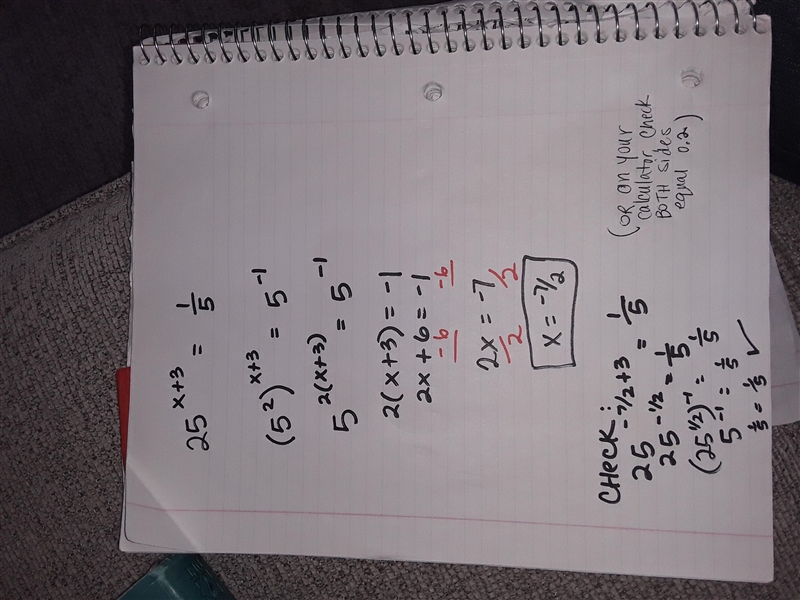 25^{x+3} = 1/5
(5²)^{x+3} = 5^{-1}
5^{2(x+3)} = 5^{-1}
2(x+3) = -1
2x+6 = -1
-6 -6
2x = -7
/2 /2
x = -7/2
CHECK:
25^{-7/2+3} = 1/5
25^{-1/2} = 1/5
(25^{1/2})^{-1} = 1/5
5^{-1} = 1/5
1/5 = 1/5 ✓
(OR on your
calculator check
BOTH sides
equal 0.2)